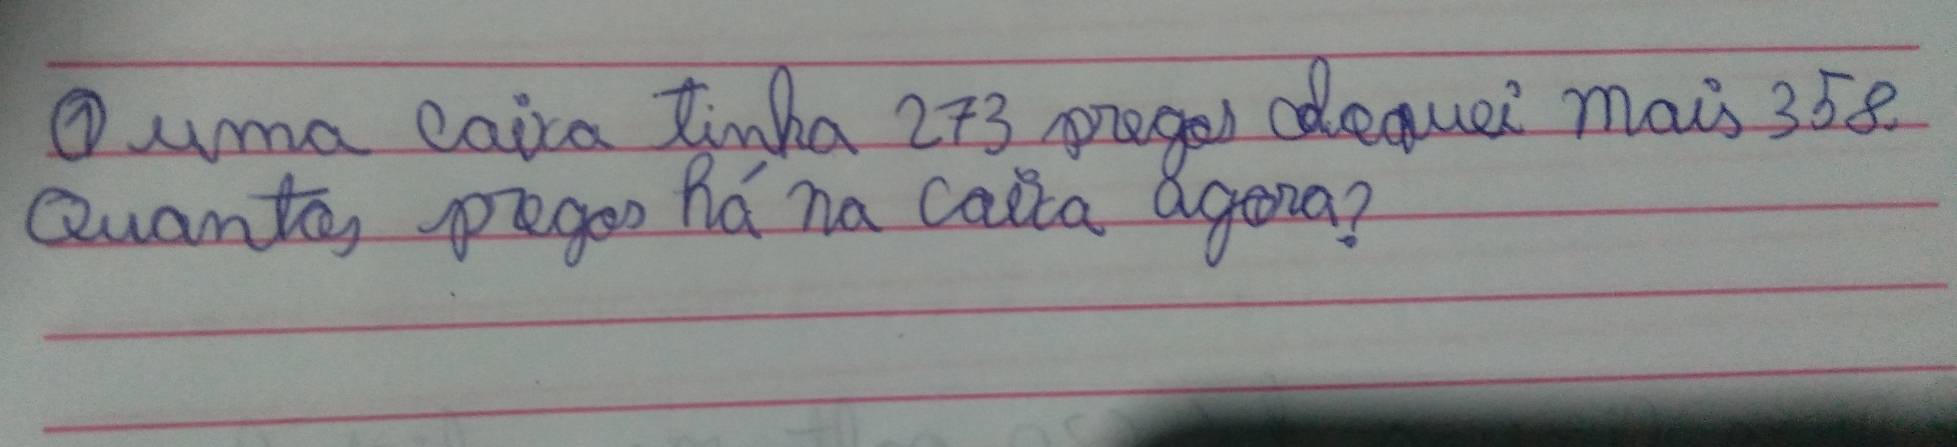 ① uma caixa tinha 273 pregos coloquei mais 358.
Quantos pregos há na caixa agora?